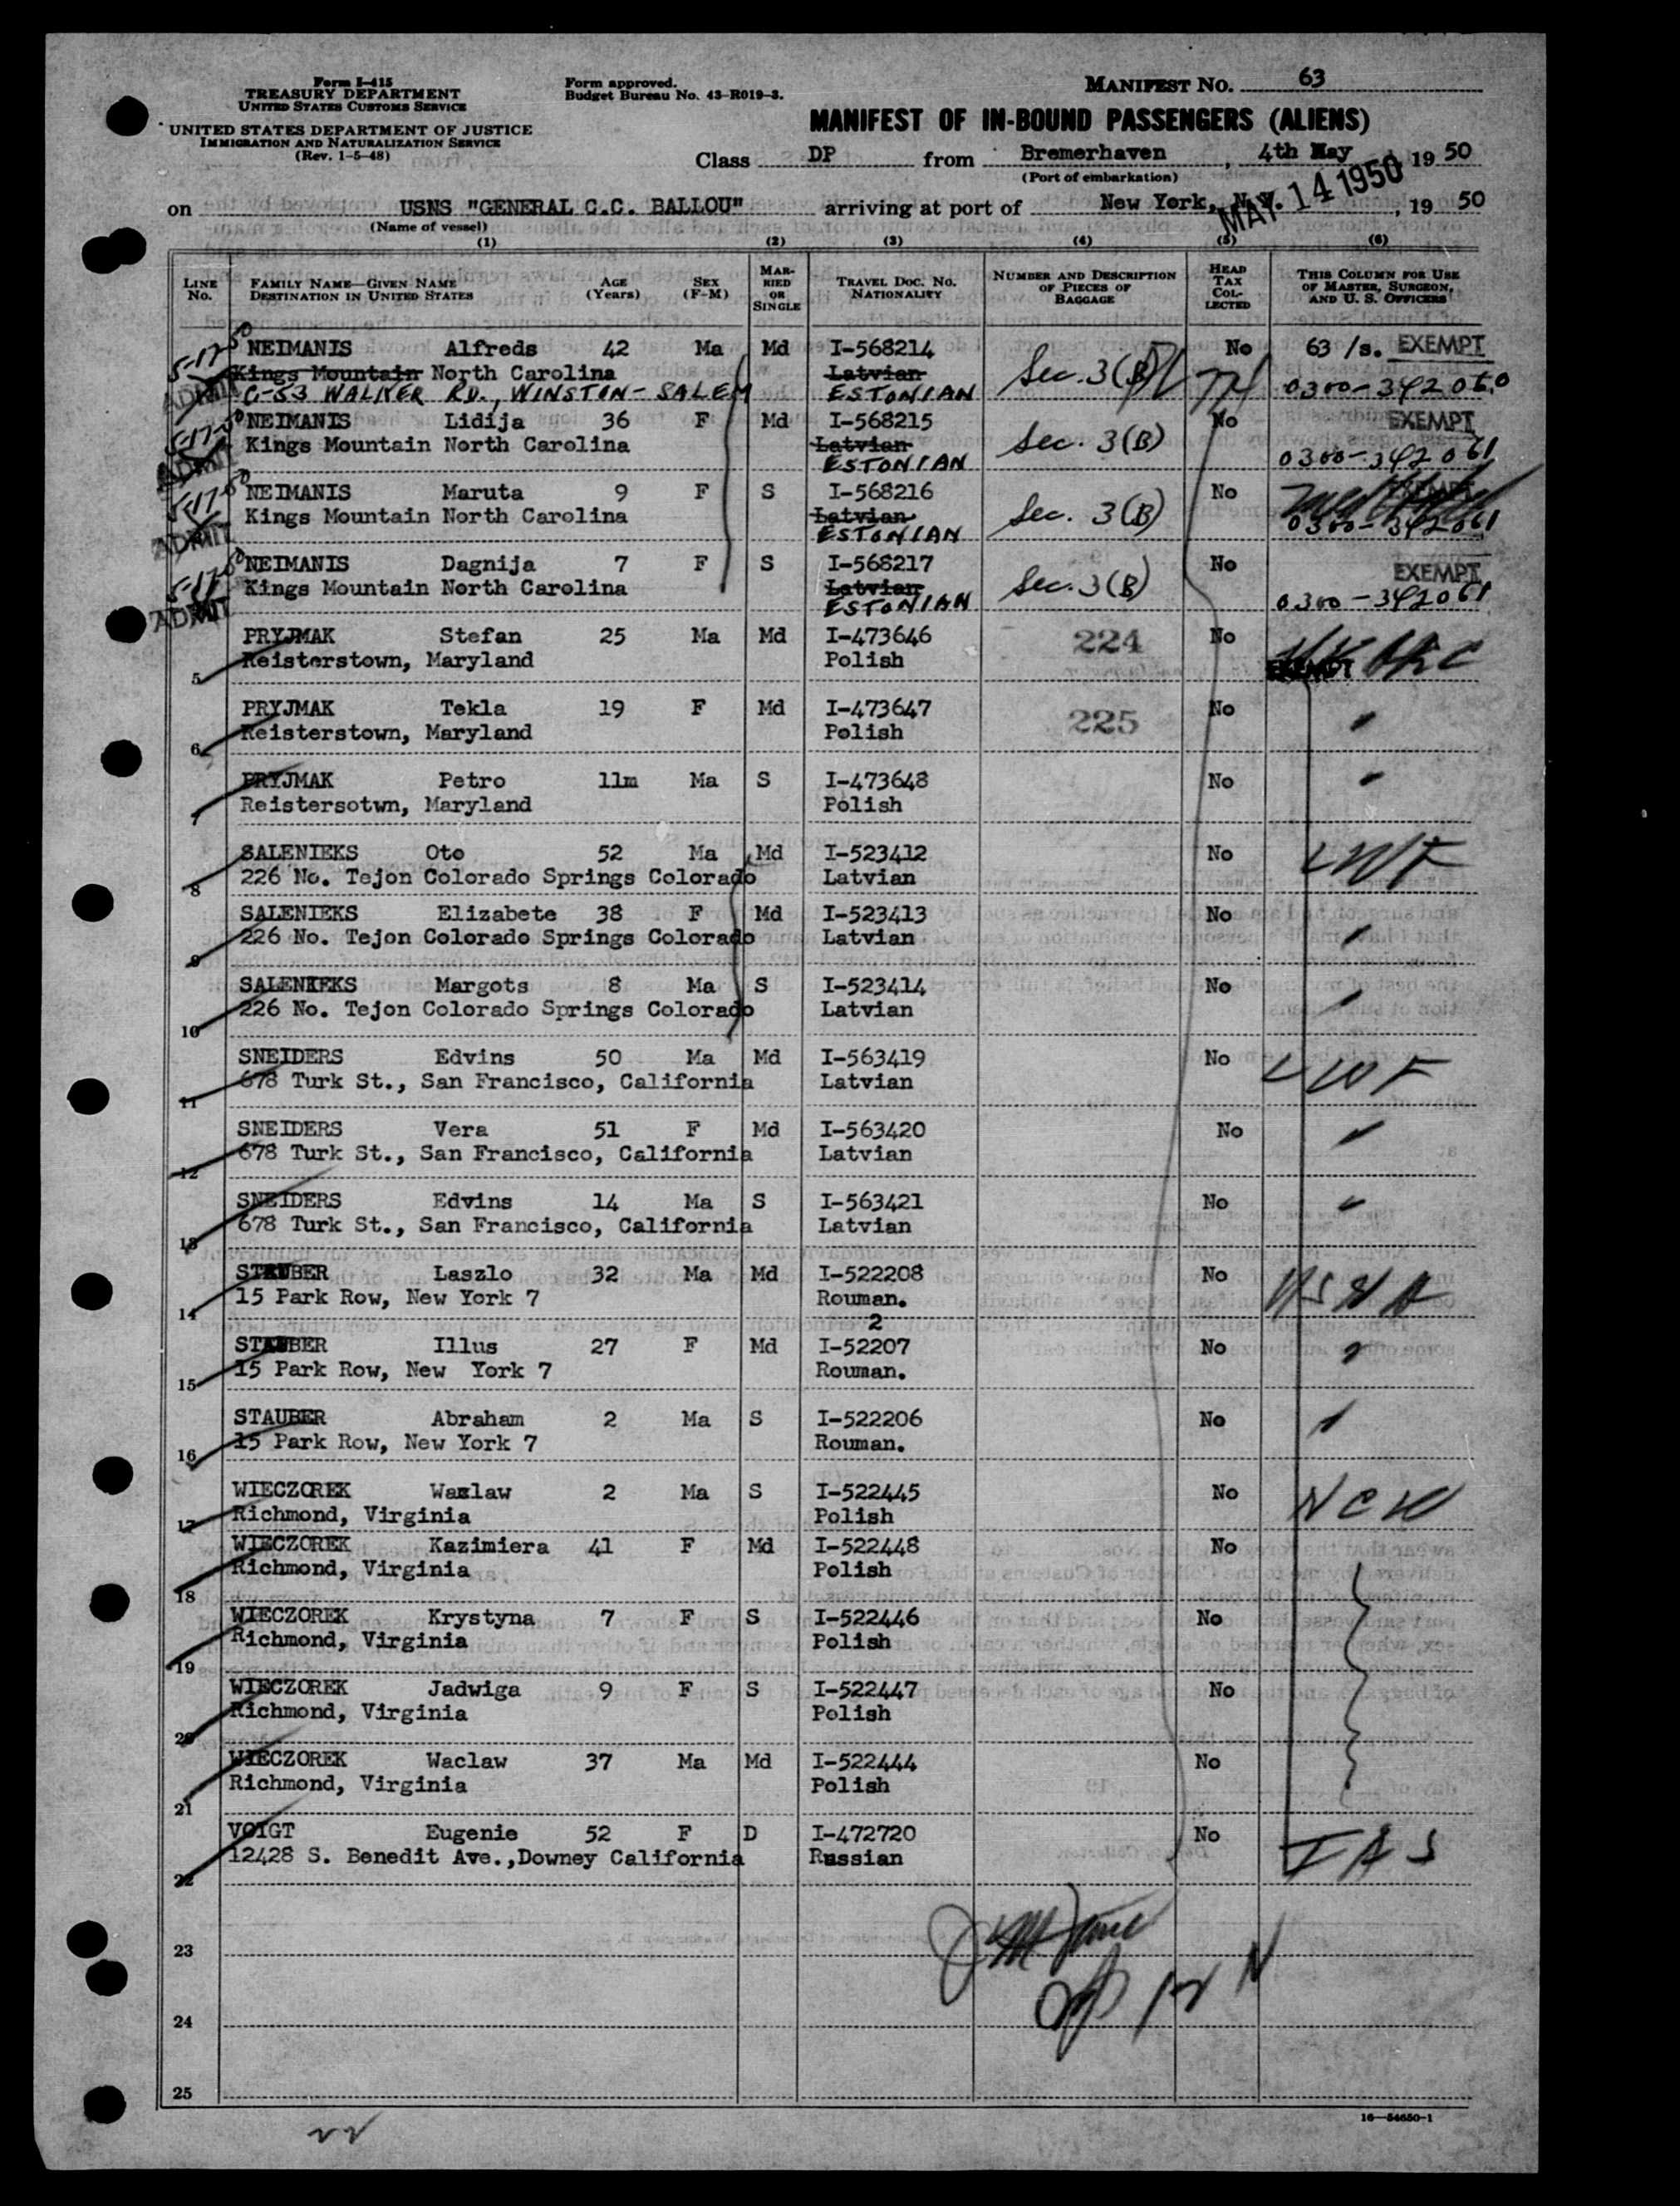 Form I-415
TREASURY DEPARTMENT
UNITED STATES CUSTOMS SERVICE
UNITED STATES DEPARTMENT OF JUSTICE
IMMIGRATION AND NATURALIZATION SERVICE
(Rev. 1-5-48)
Form approved.
Budget Bureau No. 43-R019-3.
MANIFEST NO. 63
MANIFEST OF IN-BOUND PASSENGERS (ALIENS)
Class DP from Bremerhaven, 4th May, 19 50
(Port of embarkation)
MAY 14 1950
on USNS "GENERAL C.C. BALLOU" arriving at port of New York, N.Y., 19 50
(Name of vessel)
(1) (2) (3) (4) (5) (6)
LINE No. FAMILY NAME—GIVEN NAME DESTINATION IN UNITED STATES AGE (Years) SEX (F-M) MARRIED OR SINGLE TRAVEL DOC. NO. NATIONALITY NUMBER AND DESCRIPTION OF PIECES OF BAGGAGE HEAD TAX COLLECTED THIS COLUMN FOR USE OF MASTER, SURGEON, AND U. S. OFFICERS
5-17-50 NEIMANIS Alfreds 42 Ma Md I-568214 Sec. 3(B) No 63 /s. EXEMPT
Kings Mountain North Carolina Latvian
ADMIT C-53 WALKER RD., WINSTON-SALEM ESTONIAN 0300-342060
5-17-50 NEIMANIS Lidija 36 F Md I-568215 Sec. 3(B) No EXEMPT
Kings Mountain North Carolina Latvian
ADMIT ESTONIAN 0300-342061
5-17-50 NEIMANIS Maruta 9 F S I-568216 Sec. 3(B) No EXEMPT
Kings Mountain North Carolina Latvian
ADMIT ESTONIAN 0300-342061
5-17-50 NEIMANIS Dagnija 7 F S I-568217 Sec. 3(B) No EXEMPT
Kings Mountain North Carolina Latvian
ADMIT ESTONIAN 0300-342061
PRYJMAK Stefan 25 Ma Md I-473646 224 No
5 Reisterstown, Maryland Polish EXEMPT
PRYJMAK Tekla 19 F Md I-473647 225 No
6 Reisterstown, Maryland Polish
PRYJMAK Petro 11m Ma S I-473648 No
7 Reistersotwn, Maryland Polish
SALENIEKS Oto 52 Ma Md I-523412 No LWF
8 226 No. Tejon Colorado Springs Colorado Latvian
SALENIEKS Elizabete 38 F Md I-523413 No
9 226 No. Tejon Colorado Springs Colorado Latvian
SALENIEKS Margots 8 Ma S I-523414 No
10 226 No. Tejon Colorado Springs Colorado Latvian
SNEIDERS Edvins 50 Ma Md I-563419 No LWF
11 678 Turk St., San Francisco, California Latvian
SNEIDERS Vera 51 F Md I-563420 No
12 678 Turk St., San Francisco, California Latvian
SNEIDERS Edvins 14 Ma S I-563421 No
13 678 Turk St., San Francisco, California Latvian
STAUBER Laszlo 32 Ma Md I-522208 No USNA
14 15 Park Row, New York 7 Rouman.
2
STAUBER Illus 27 F Md I-52207 No
15 15 Park Row, New York 7 Rouman.
STAUBER Abraham 2 Ma S I-522206 No
16 15 Park Row, New York 7 Rouman.
WIECZOREK Waclaw 2 Ma S I-522445 No NCW
17 Richmond, Virginia Polish
WIECZOREK Kazimiera 41 F Md I-522448 No
18 Richmond, Virginia Polish
WIECZOREK Krystyna 7 F S I-522446 No
19 Richmond, Virginia Polish
WIECZOREK Jadwiga 9 F S I-522447 No
20 Richmond, Virginia Polish
WIECZOREK Waclaw 37 Ma Md I-522444 No
21 Richmond, Virginia Polish
VOIGT Eugenie 52 F D I-472720 No IAS
22 12428 S. Benedit Ave.,Downey California Russian
23
24
25
16—54650-1